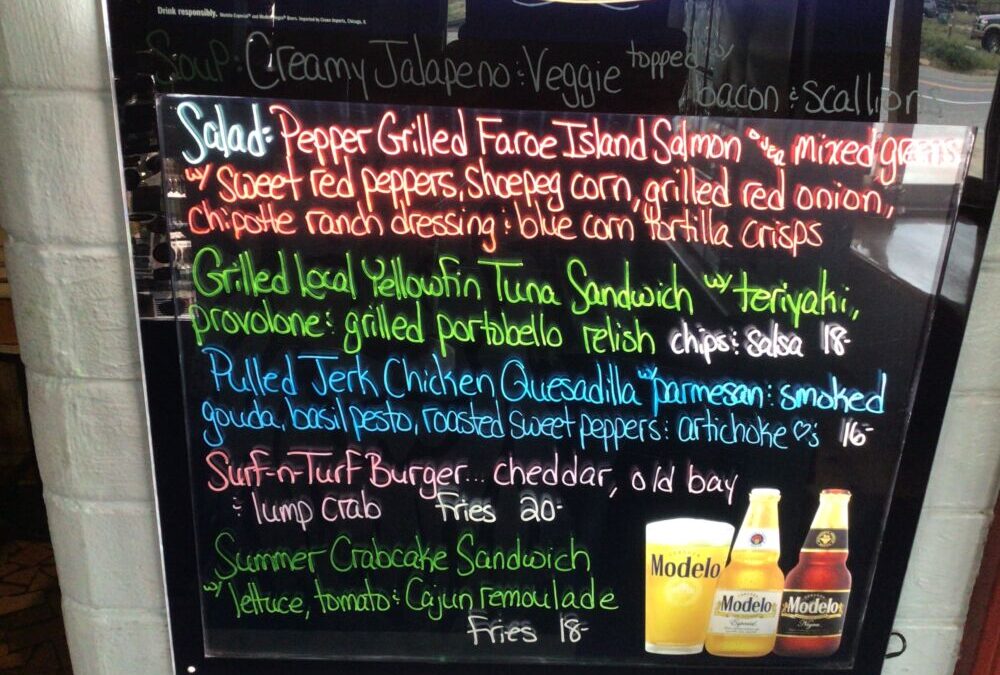 Drink responsibly. Modelo Especial® and Modelo Negra® Beers. Imported by Crown Imports, Chicago, IL
Soup: Creamy Jalapeno & Veggie topped w/
bacon & scallions
Salad: Pepper Grilled Faroe Island Salmon over mixed greens
w/ sweet red peppers, shoepeg corn, grilled red onion,
chipotle ranch dressing & blue corn tortilla crisps
Grilled Local Yellowfin Tuna Sandwich w/ teriyaki,
provolone & grilled portobello relish chips & salsa 18-
Pulled Jerk Chicken Quesadilla w/ parmesan & smoked
gouda, basil pesto, roasted sweet peppers & artichoke ♡s 16-
Surf-n-Turf Burger... cheddar, old bay
& lump crab Fries 20-
Summer Crabcake Sandwich
w/ lettuce, tomato & Cajun remoulade
Fries 18-
Modelo
Modelo
Especial
Modelo
Negra